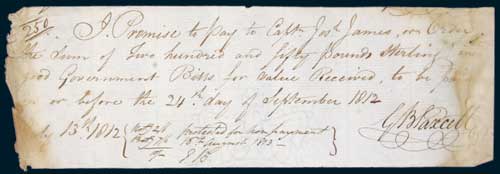 250. I Promise to pay to Captn. Josh. James, or Order
the Sum of Two Hundred and fifty Pounds Sterling in
good Government Bills for Value Received, to be paid
on or before the 24th. day of September 1812
13th 1812 protested for nonpayment
16th August 1813
GBlaxcell